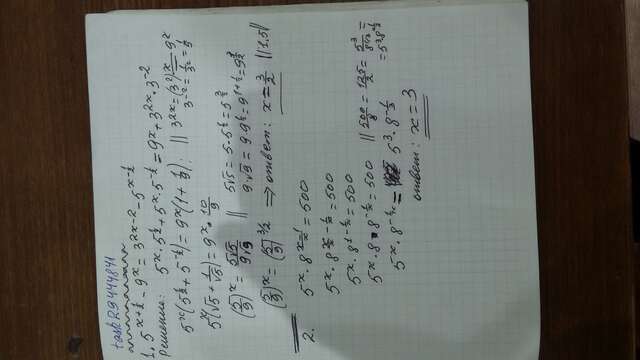 task 29444841
1. 5^{x+1/2} - 9^x = 3^{2x-2} - 5^{x-1/2}
Решение: 5^x · 5^{1/2} + 5^x · 5^{-1/2} = 9^x + 3^{2x} · 3^{-2}
5^x (5^{1/2} + 5^{-1/2}) = 9^x (1 + 1/9); || 3^{2x} = (3^2)^x = 9^x
3^{-2} = 1/3^2 = 1/9
5^x (√5 + 1/√5) = 9^x · 10/9
(5/9)^x = 5√5/9√9 || 5√5 = 5 · 5^{1/2} = 5^{3/2}
9·√9 = 9·9^{1/2} = 9^{1+1/2} = 9^{3/2}
(5/9)^x = (5/9)^{3/2} ⇒ ответ: x = 3/2 ||1.5||
2. 5^x · 8^{x-1/x} = 500
5^x · 8^{x/x - 1/x} = 500
5^x · 8^{1-1/x} = 500
5^x · 8 · 8^{-1/x} = 500 || 500/8 = 125/2 = 5^3/8^{1/3} =
= 5^3 · 8^{-1/3}
5^x · 8^{-1/x} = 5^3 · 8^{-1/3}
ответ: x = 3